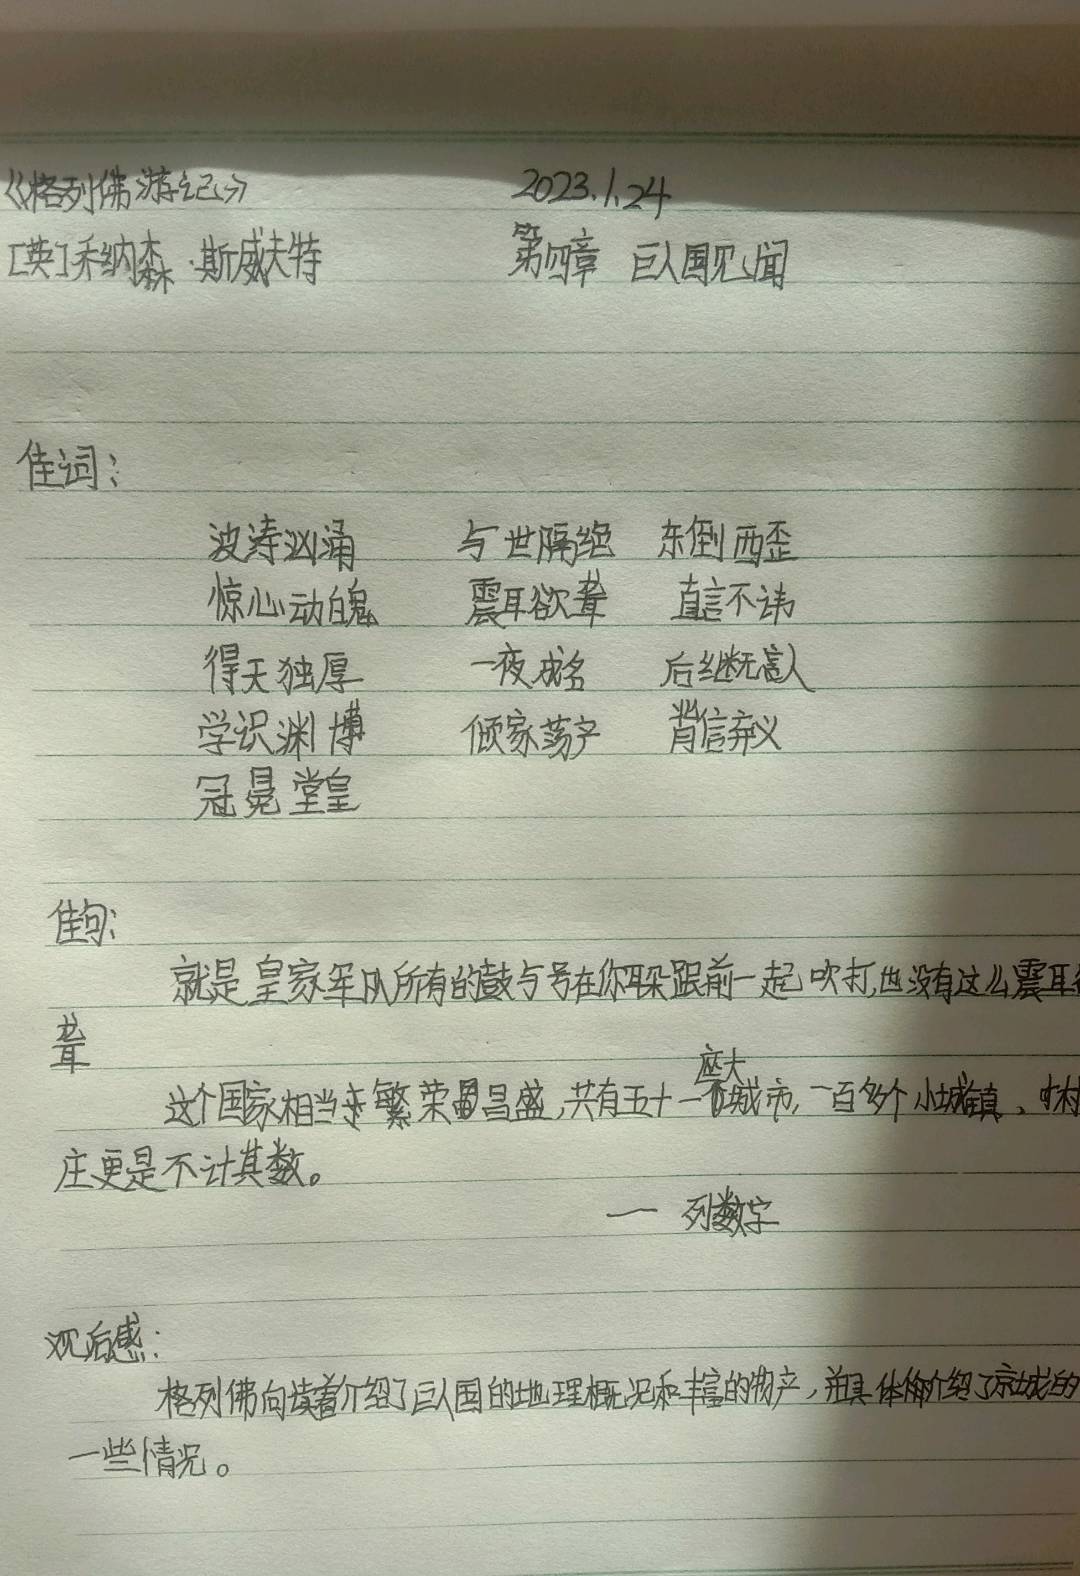 《格列佛游记》 2023.1.24
[英]乔纳森·斯威夫特 第四章 巨人国见闻
佳词：
波涛汹涌 与世隔绝 东倒西歪
惊心动魄 震耳欲聋 直言不讳
得天独厚 一夜成名 后继无人
学识渊博 倾家荡产 背信弃义
冠冕堂皇
佳句：
就是皇家军队所有的鼓与号在你耳朵跟前一起吹打,也没有这么震耳欲
聋
这个国家相当繁荣昌盛,共有五十一座大城市,一百多个小城镇、村
庄更是不计其数。
—— 列数字
观后感：
格列佛向读者介绍了巨人国的地理概况和丰富的物产,并具体介绍了京城的
一些情况。